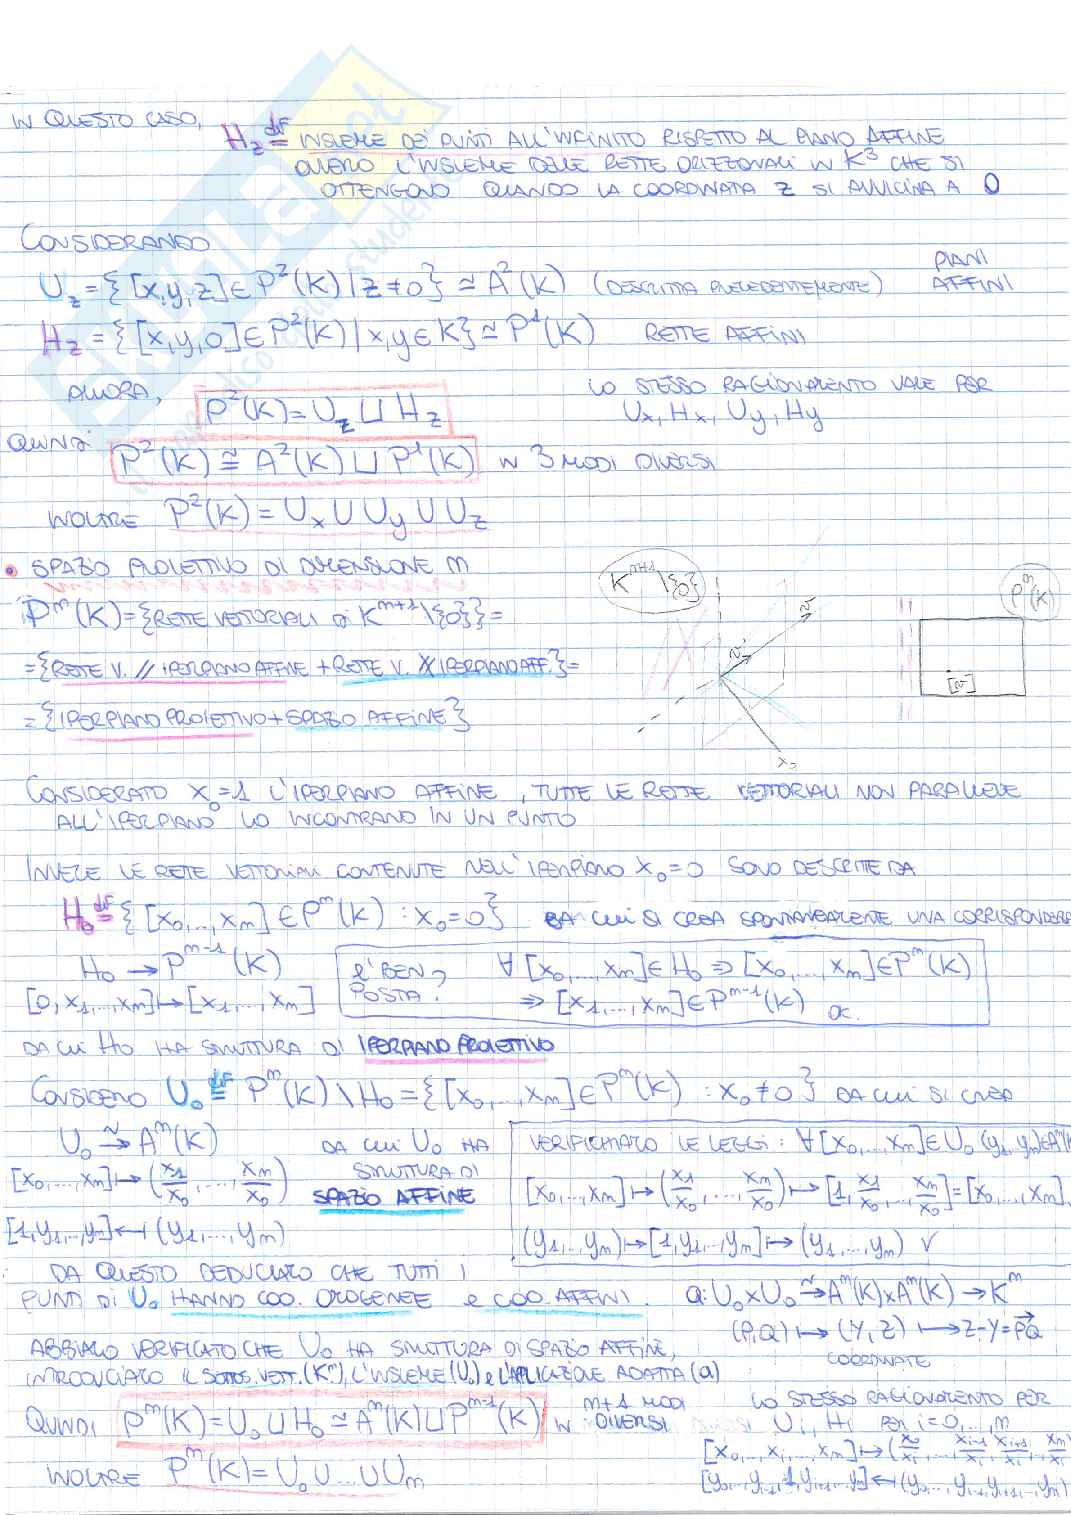 IN QUESTO CASO,
H_z =def INSIEME DEI PUNTI ALL'INFINITO RISPETTO AL PIANO AFFINE
OVVERO L'INSIEME DELLE RETTE ORIZZONALI IN K³ CHE SI
OTTENGONO QUANDO LA COORDINATA Z SI AVVICINA A 0
CONSIDERANDO
U_z = {[x,y,z] ∈ P²(K) | z ≠ 0} ≃ A²(K) (DESCRITTA PRECEDENTEMENTE) PIANI AFFINI
H_z = {[x,y,0] ∈ P²(K) | x,y ∈ K} ≃ P¹(K) RETTE AFFINI
ALLORA, P²(K) = U_z ⊔ H_z
LO STESSO RAGIONAMENTO VALE PER
U_x, H_x, U_y, H_y
QUINDI P²(K) ≅ A²(K) ⊔ P¹(K) IN 3 MODI DIVERSI
INOLTRE P²(K) = U_x ∪ U_y ∪ U_z
• SPAZIO PROIETTIVO DI DIMENSIONE m
P^m(K) = {RETTE VETTORIALI DI K^{m+1} \ {0}} =
= {RETTE V. // IPERPIANO AFFINE + RETTE V. ∦ IPERPIANO AFF.} =
= {IPERPIANO PROIETTIVO + SPAZIO AFFINE}
K^{m+1} \ {0}
v
v
x_0
P^m(K)
[v]
CONSIDERATO x_0 = 1 L'IPERPIANO AFFINE, TUTTE LE RETTE VETTORIALI NON PARALLELE
ALL'IPERPIANO LO INCONTRANO IN UN PUNTO
INVECE LE RETTE VETTORIALI CONTENUTE NELL'IPERPIANO x_0 = 0 SONO DESCRITTE DA
H_0 =def {[x_0,...,x_m] ∈ P^m(K) : x_0 = 0} DA CUI SI CREA SPONTANEAMENTE UNA CORRISPONDENZ
H_0 → P^{m-1}(K)
[0, x_1,...,x_m] ↦ [x_1,...,x_m]
E' BEN POSTA? ∀ [x_0,...,x_m] ∈ H_0 ⇒ [x_0,...,x_m] ∈ P^m(K)
⇒ [x_1,...,x_m] ∈ P^{m-1}(K) OK.
DA CUI H_0 HA STRUTTURA DI IPERPIANO PROIETTIVO
CONSIDERO U_0 =def P^m(K) \ H_0 = {[x_0,...,x_m] ∈ P^m(K) : x_0 ≠ 0} DA CUI SI CREA
U_0 →~ A^m(K)
[x_0,...,x_m] ↦ (x_1/x_0,...,x_m/x_0)
[1,y_1,...,y_m] ↤ (y_1,...,y_m)
DA CUI U_0 HA
STRUTTURA DI
SPAZIO AFFINE
VERIFICHIAMO LE LEGGI: ∀ [x_0,...,x_m] ∈ U_0 (y_1...y_m) ∈ A^m(K
[x_0,...,x_m] ↦ (x_1/x_0,...,x_m/x_0) ↦ [1, x_1/x_0,...,x_m/x_0] = [x_0,...,x_m]
(y_1,...,y_m) ↦ [1,y_1,...,y_m] ↦ (y_1,...,y_m) ✓
DA QUESTO DEDUCIAMO CHE TUTTI I
PUNTI DI U_0 HANNO COO. OMOGENEE e COO. AFFINI.
a: U_0 × U_0 →~ A^m(K) × A^m(K) → K^m
(P,Q) ↦ (Y,Z) ↦ Z-Y = PQ
COORDINATE
ABBIAMO VERIFICATO CHE U_0 HA STRUTTURA DI SPAZIO AFFINE,
INTRODUCIAMO IL SOTTOS. VETT. (K^m), L'INSIEME (U_0) e L'APLICAZIONE ADATTA (a)
QUINDI P^m(K) = U_0 ⊔ H_0 ≃ A^m(K) ⊔ P^{m-1}(K) IN m+1 MODI DIVERSI
LO STESSO RAGIONAMENTO PER
U_i, H_i PER i = 0,...,m
INOLTRE P^m(K) = U_0 ∪ ... ∪ U_m
[x_0,...,x_i,...,x_m] ↦ (x_0/x_i,...,x_{i-1}/x_i, x_{i+1}/x_i,...,x_m/x_i)
[y_0,...,y_{i-1},1,y_{i+1},...,y_m] ↤ (y_0,...,y_{i-1},y_{i+1},...,y_m)